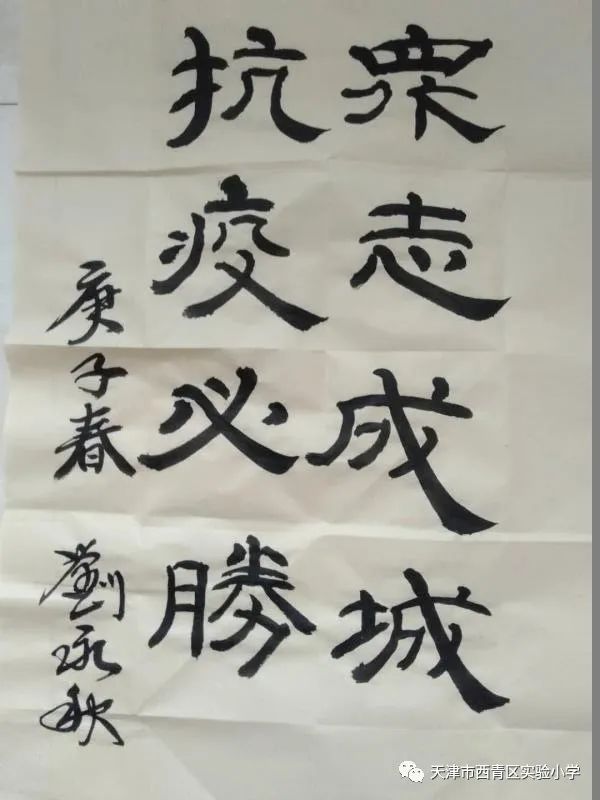 眾志成城
抗疫必勝
庚子春
劉 秋
天津市西青区实验小学